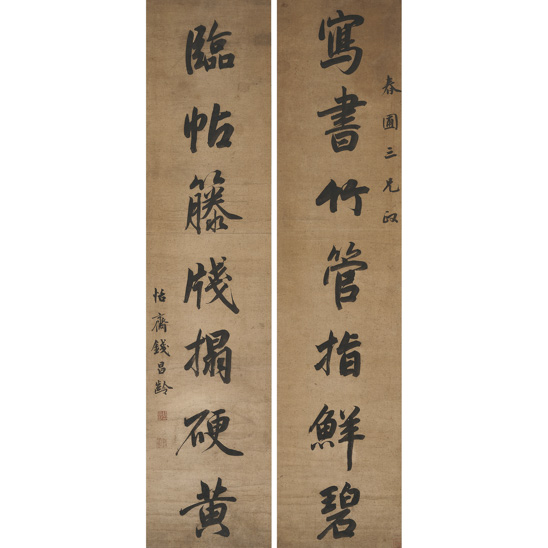 春圃三兄政
寫書竹管指鮮碧
臨帖籐牋搨硬黄
怡齋錢昌齡